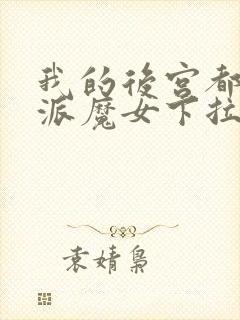 我的後宮都
派魔女卞拉
袁婧梟